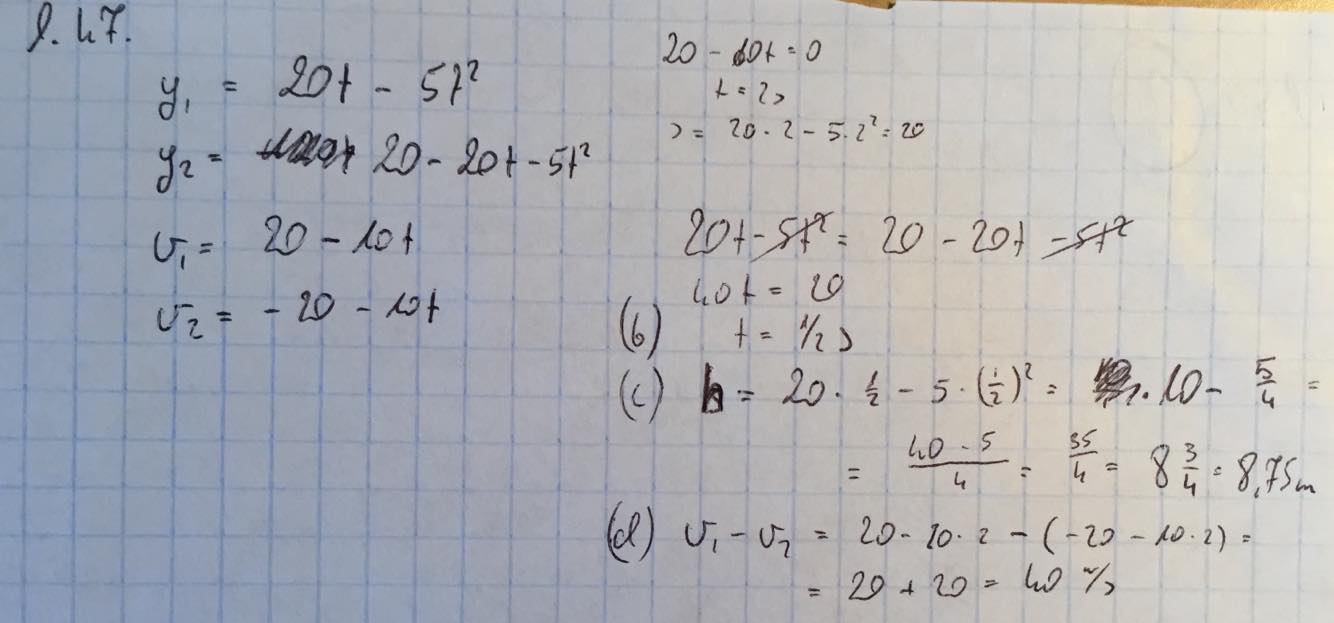 l. 47.
y₁ = 20t - 5t²
y₂ = 20 - 20t - 5t²
v₁ = 20 - 10t
v₂ = - 20 - 10t
20 - 10t = 0
t = 2s
s = 20 · 2 - 5 · 2² = 20
20t - 5t² = 20 - 20t - 5t²
40t = 20
(b) t = 1/2 s
(c) h = 20 · 1/2 - 5 · (1/2)² = 10 - 5/4 =
= (40 - 5)/4 = 35/4 = 8 3/4 = 8,75m
(d) v₁ - v₂ = 20 - 10 · 2 - (-20 - 10 · 2) =
= 20 + 20 = 40 m/s